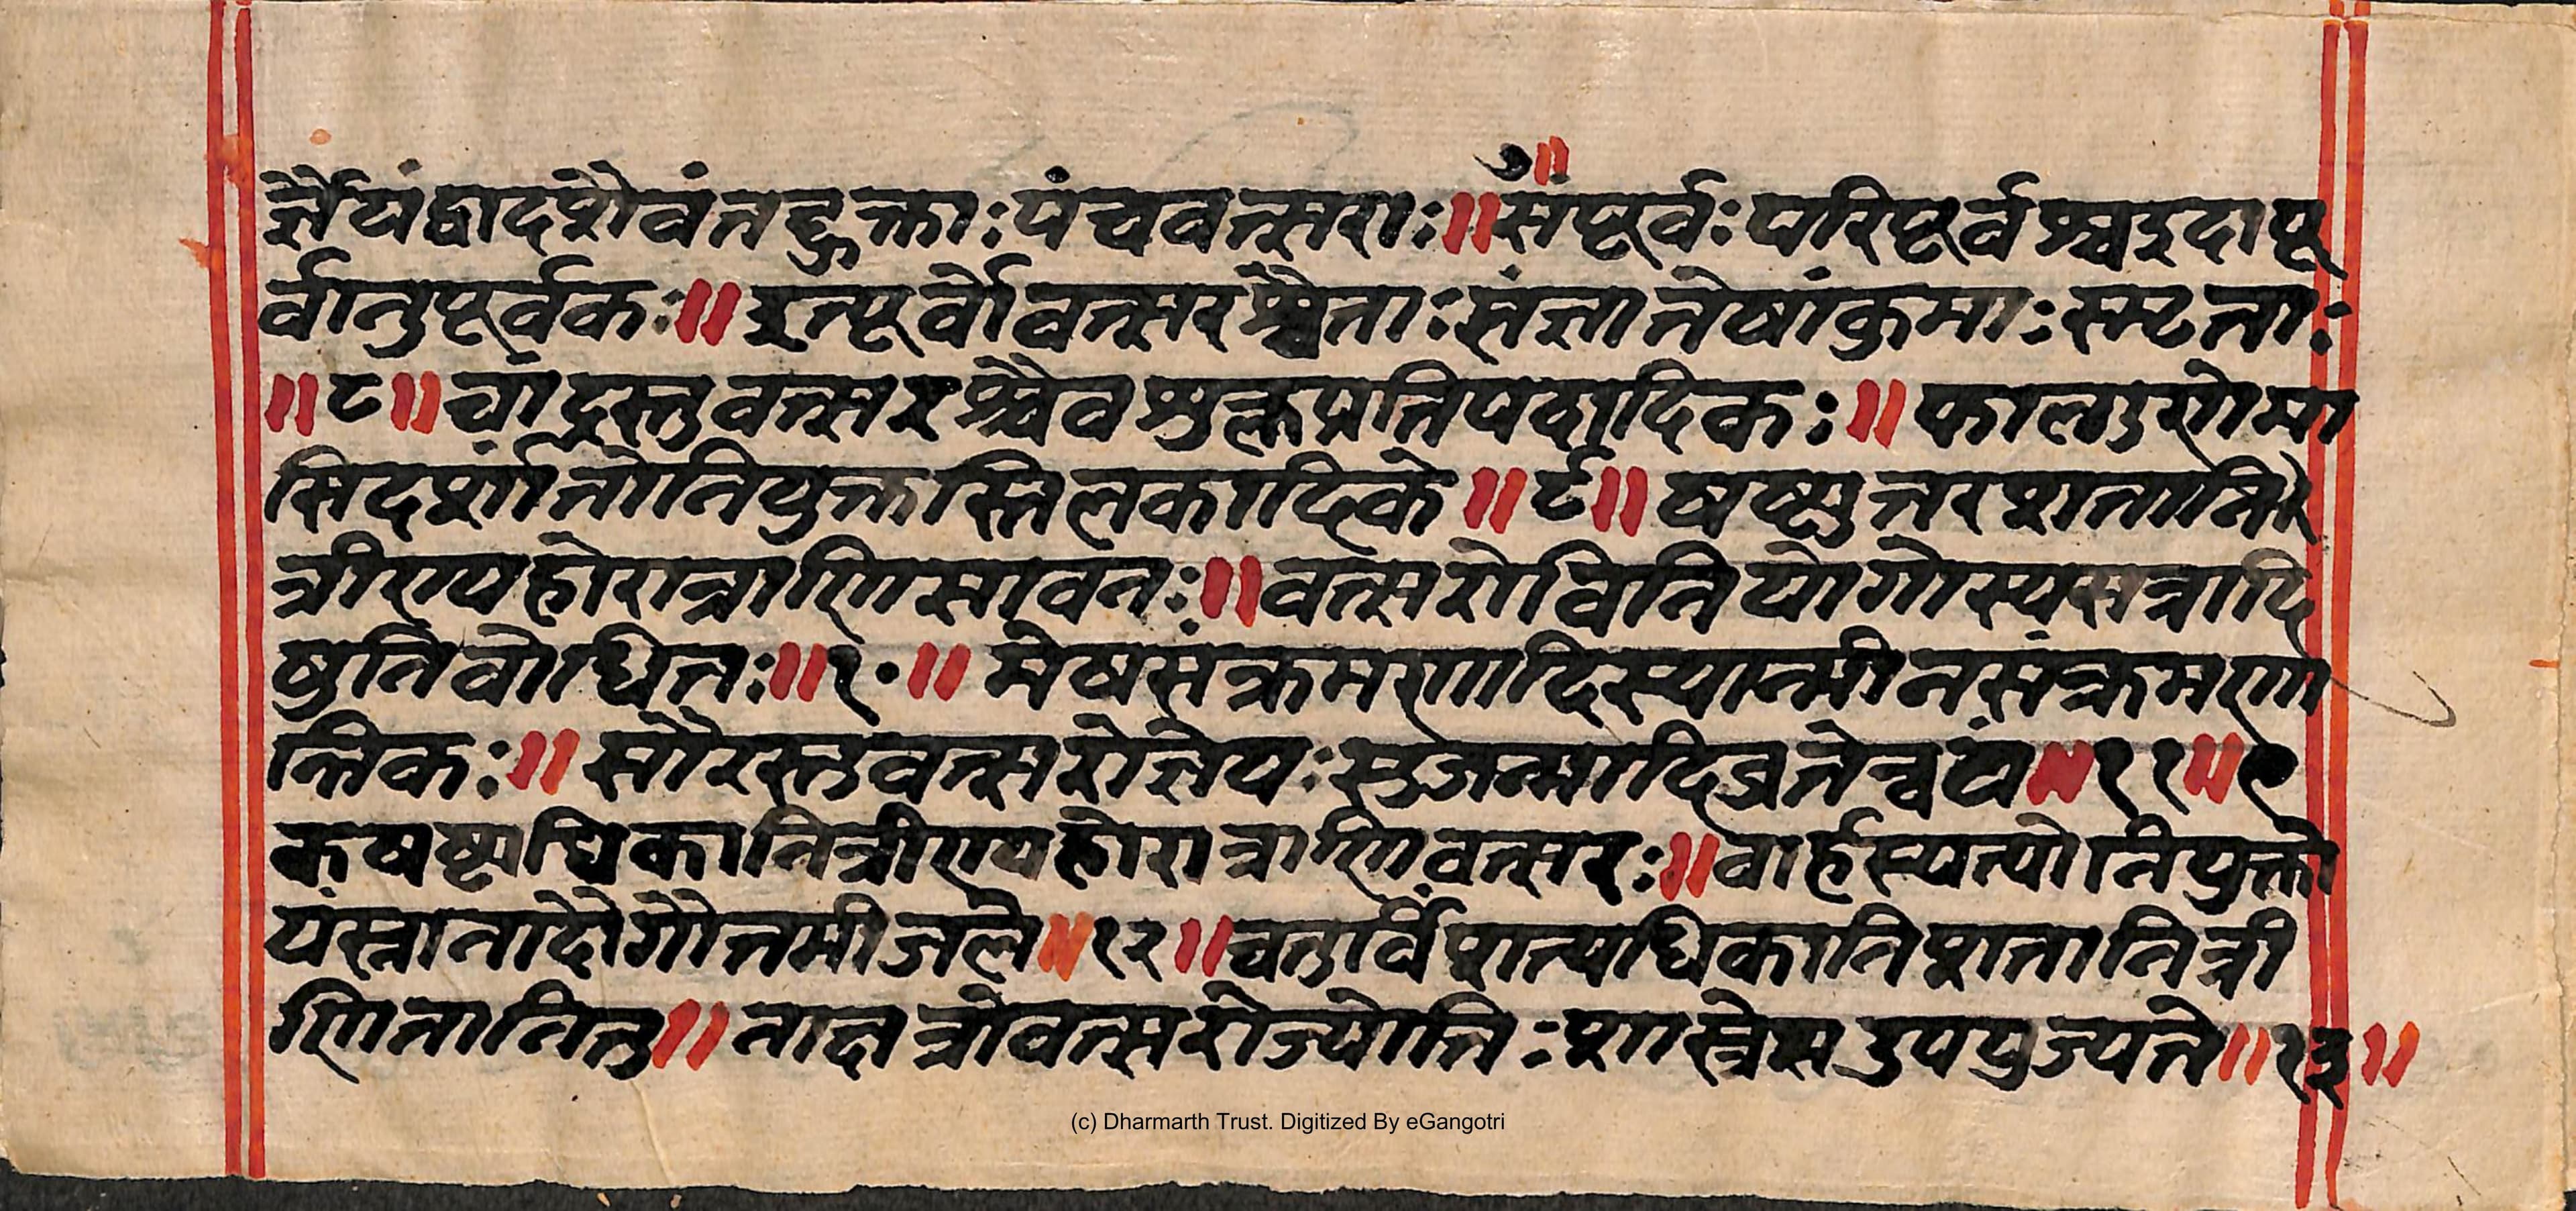 ७॥
र्ज्ञेयं द्वादशैवं तद्युक्ताः पंचवत्सराः॥ संपूर्वः परिपूर्वश्च इदापू
र्वानुपूर्वकः॥ इत्पूर्वो वत्सरश्चैताः संज्ञा तेषां क्रमाः स्मृताः
॥८॥ चांद्रस्तु वत्सरश्चैव शुक्लप्रतिपदादिकः॥ फाल्गुणो मा
सि दर्शांतो नियुक्तस्तिलकादिके॥९॥ षष्ट्युत्तरशतानि
त्रीण्यहोरात्राणि सावनः॥ वत्सरो विनियोगोस्य सत्रादि
षु निबोधितः॥१०॥ मेषसंक्रमणादिस्यान्मीनसंक्रमणा
न्तिकः॥ सौरस्तु वत्सरो ज्ञेयः स्तुजन्मादिव्रतेन्वयं॥११॥ ए
कषष्ट्याधिकानि त्रीण्यहोरात्राणि वत्सरः॥ वार्हस्पत्यो नियुक्तो
यं स्नानादौ गौतमीजले॥१२॥ चतुर्विंशात्यधिकानि शतानि त्री
णि तानि तु॥ नाक्षत्रो वत्सरो ज्योतिःशास्त्रेस उपयुज्यते॥१३॥
(c) Dharmarth Trust. Digitized By eGangotri